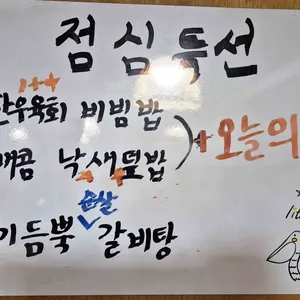 점심특선
1++
한우육회 비빔밥
매콤 낙새덮밥
+ 오늘의
순살
기듬뿍 갈비탕